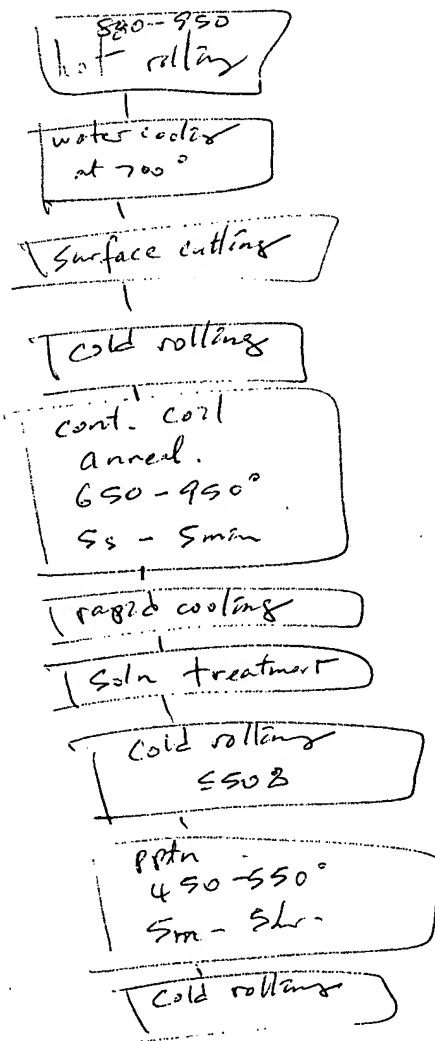 880-950
hot rolling
water cooling
at 700°
Surface cutting
cold rolling
cont. coil
anneal.
650-950°
5s - 5min
rapid cooling
Soln treatment
Cold rolling
≤50%
pptn
450-550°
5m - 5hr.
Cold rolling